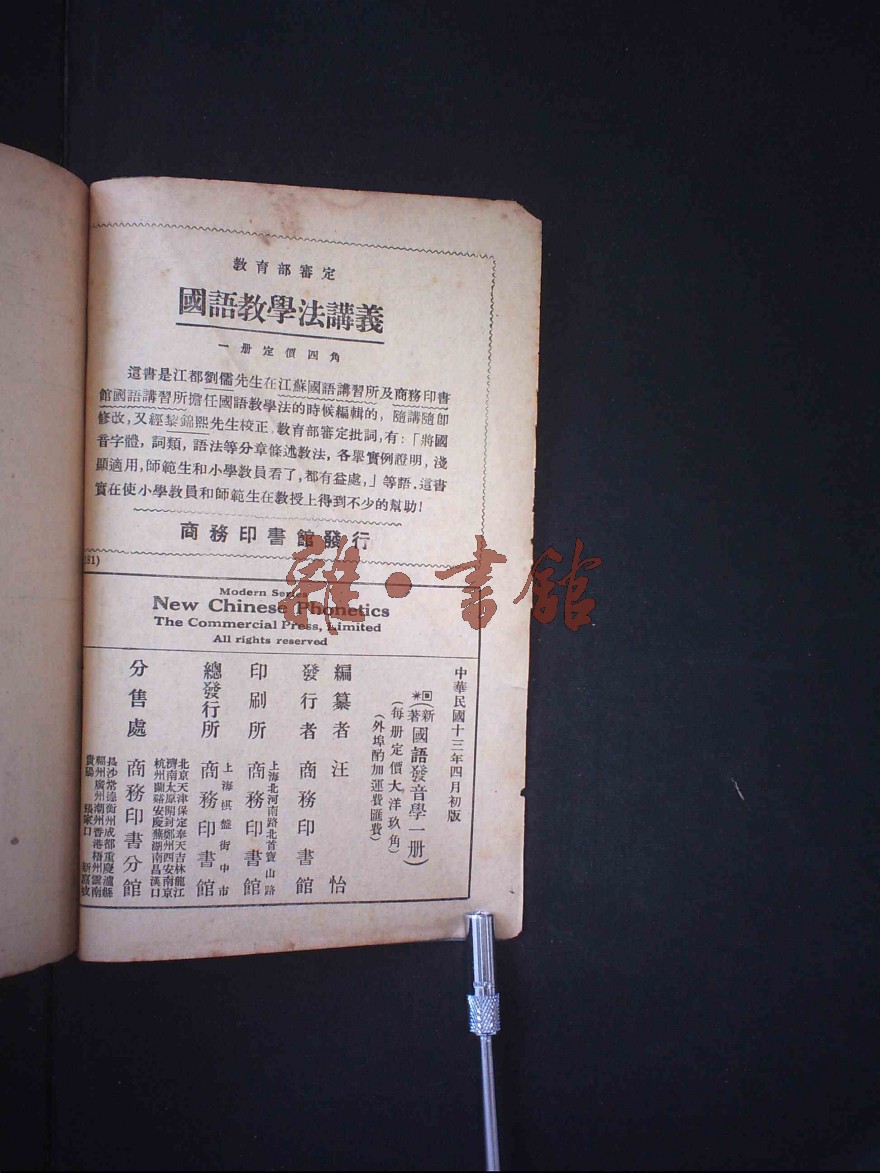 教育部審定
國語教學法講義
一册定價四角
這書是江都劉儒先生在江蘇國語講習所及商務印書
館國語講習所擔任國語教學法的時候編輯的，隨講隨卽
修改，又經黎錦熙先生校正，教育部審定批詞，有：「將國
音字體，詞類，語法等分章條述教法，各舉實例證明，淺
顯適用，師範生和小學教員看了，都有益處，」等語，這書
實在使小學教員和師範生在教授上得到不少的幫助！
商務印書館發行
雜·書館
Modern Series
New Chinese Phonetics
The Commercial Press, Limited
All rights reserved
中華民國十三年四月初版
(新著國語發音學一册)
(每册定價大洋玖角)
(外埠酌加運費匯費)
編纂者 汪怡
發行者 商務印書館
上海北河南路北首寶山路
印刷所 商務印書館
上海棋盤街中市
總發行所 商務印書館
北京天津保定奉天吉林龍江
濟南太原開封鄭州西安南京
杭州蘭谿安慶蕪湖南昌漢口
分售處 商務印書分館
長沙常德衡州成都重慶瀘縣
福州廣州潮州香港梧州雲南
貴陽 張家口 新嘉坡